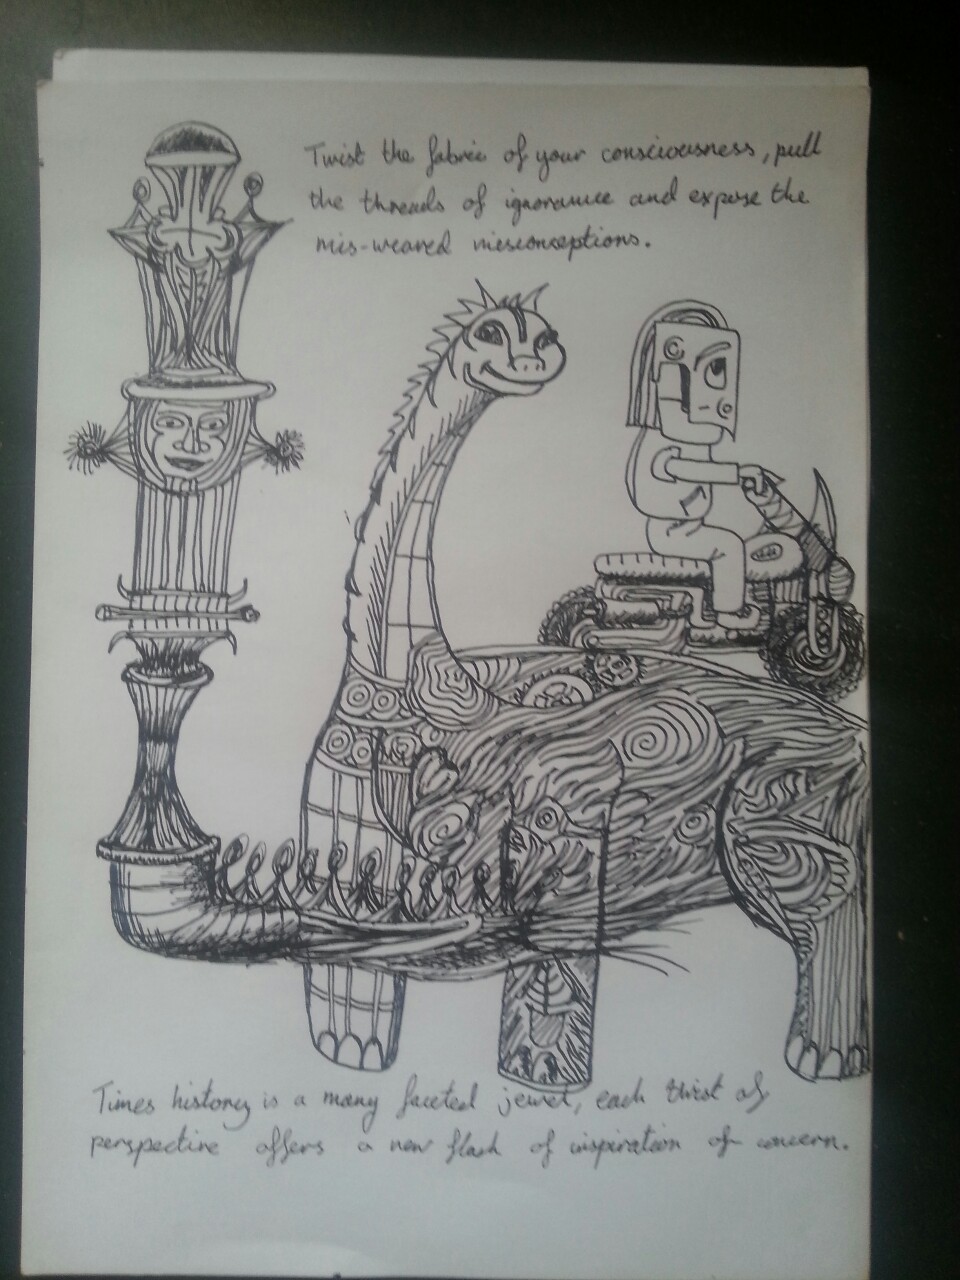 Twist the fabric of your consciousness, pull
the threads of ignorance and expose the
mis-weaved misconceptions.
Times history is a many faceted jewel, each twist of
perspective offers a new flash of inspiration of concern.